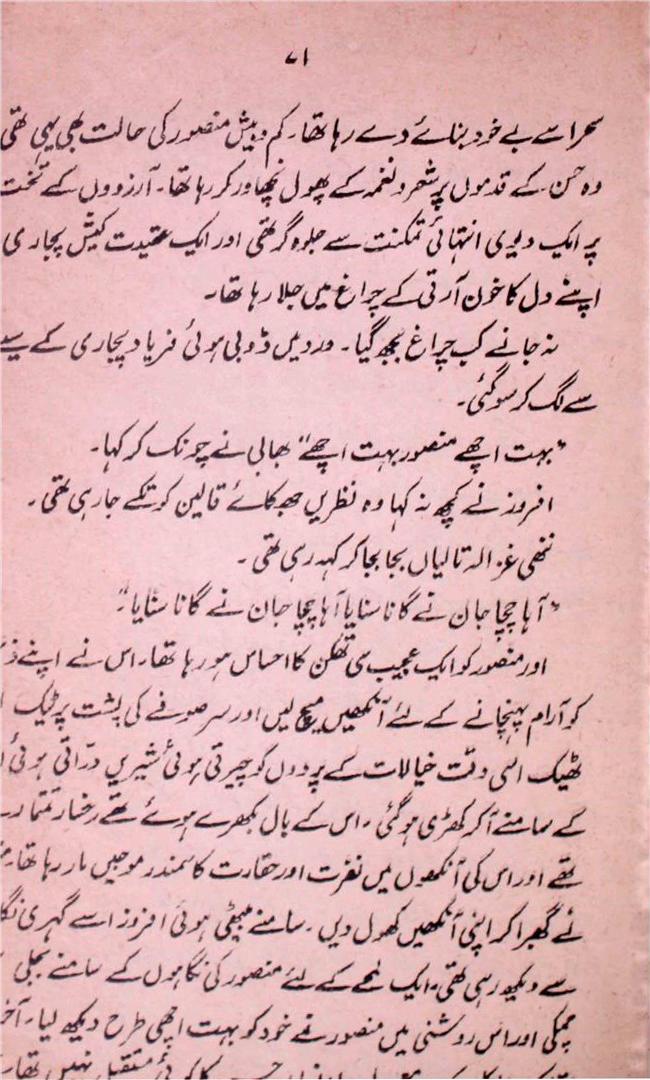 ۷۱
سحر اسے بے خود بنائے دے رہا تھا۔ کم و بیش منصور کی حالت بھی یہی تھی
وہ حسن کے قدموں پر شعر و نغمہ کے پھول نچھاور کر رہا تھا۔ آرزووں کے تخت
پر ایک دیوی انتہائی تمکنت سے جلوہ گر تھی اور ایک عقیدت کیش پجاری
اپنے دل کا خون آرتی کے چراغ میں جلا رہا تھا۔
نہ جانے کب چراغ بجھ گیا۔ درد میں ڈوبی ہوئی فریاد پجاری کے
سے لگ کر سو گئی۔
"بہت اچھے منصور بہت اچھے" بھابی نے چونک کر کہا۔
افروز نے کچھ نہ کہا وہ نظریں جھکائے قالین کو تکے جا رہی تھی۔
ننھی غزالہ تالیاں بجا بجا کر کہہ رہی تھی۔
"آہا چچا جان نے گانا سنایا آہا چچا جان نے گانا سنایا"۔
اور منصور کو ایک عجیب سی تھکن کا احساس ہو رہا تھا۔ اس نے اپنے
کو آرام پہنچانے کے لئے آنکھیں میچ لیں اور سر صوفے کی پشت پر ٹیک
ٹھیک اسی وقت خیالات کے پردوں کو چیرتی ہوئی شیریں درّاتی ہوئی
کے سامنے آ کر کھڑی ہو گئی۔ اس کے بال بکھرے ہوئے تھے رخسار تمتما
تھے اور اس کی آنکھوں میں نفرت اور حقارت کا سمندر موجیں مار رہا تھا۔
نے گھبرا کر اپنی آنکھیں کھول دیں۔ سامنے بیٹھی ہوئی افروز اسے گہری
سے دیکھ رہی تھی۔ ایک لمحے کے لئے منصور کی نگاہوں کے سامنے بجلی
چمکی اور اس روشنی میں منصور نے خود کو بہت اچھی طرح دیکھ لیا۔
کا کوئی مستقبل نہیں تھا۔